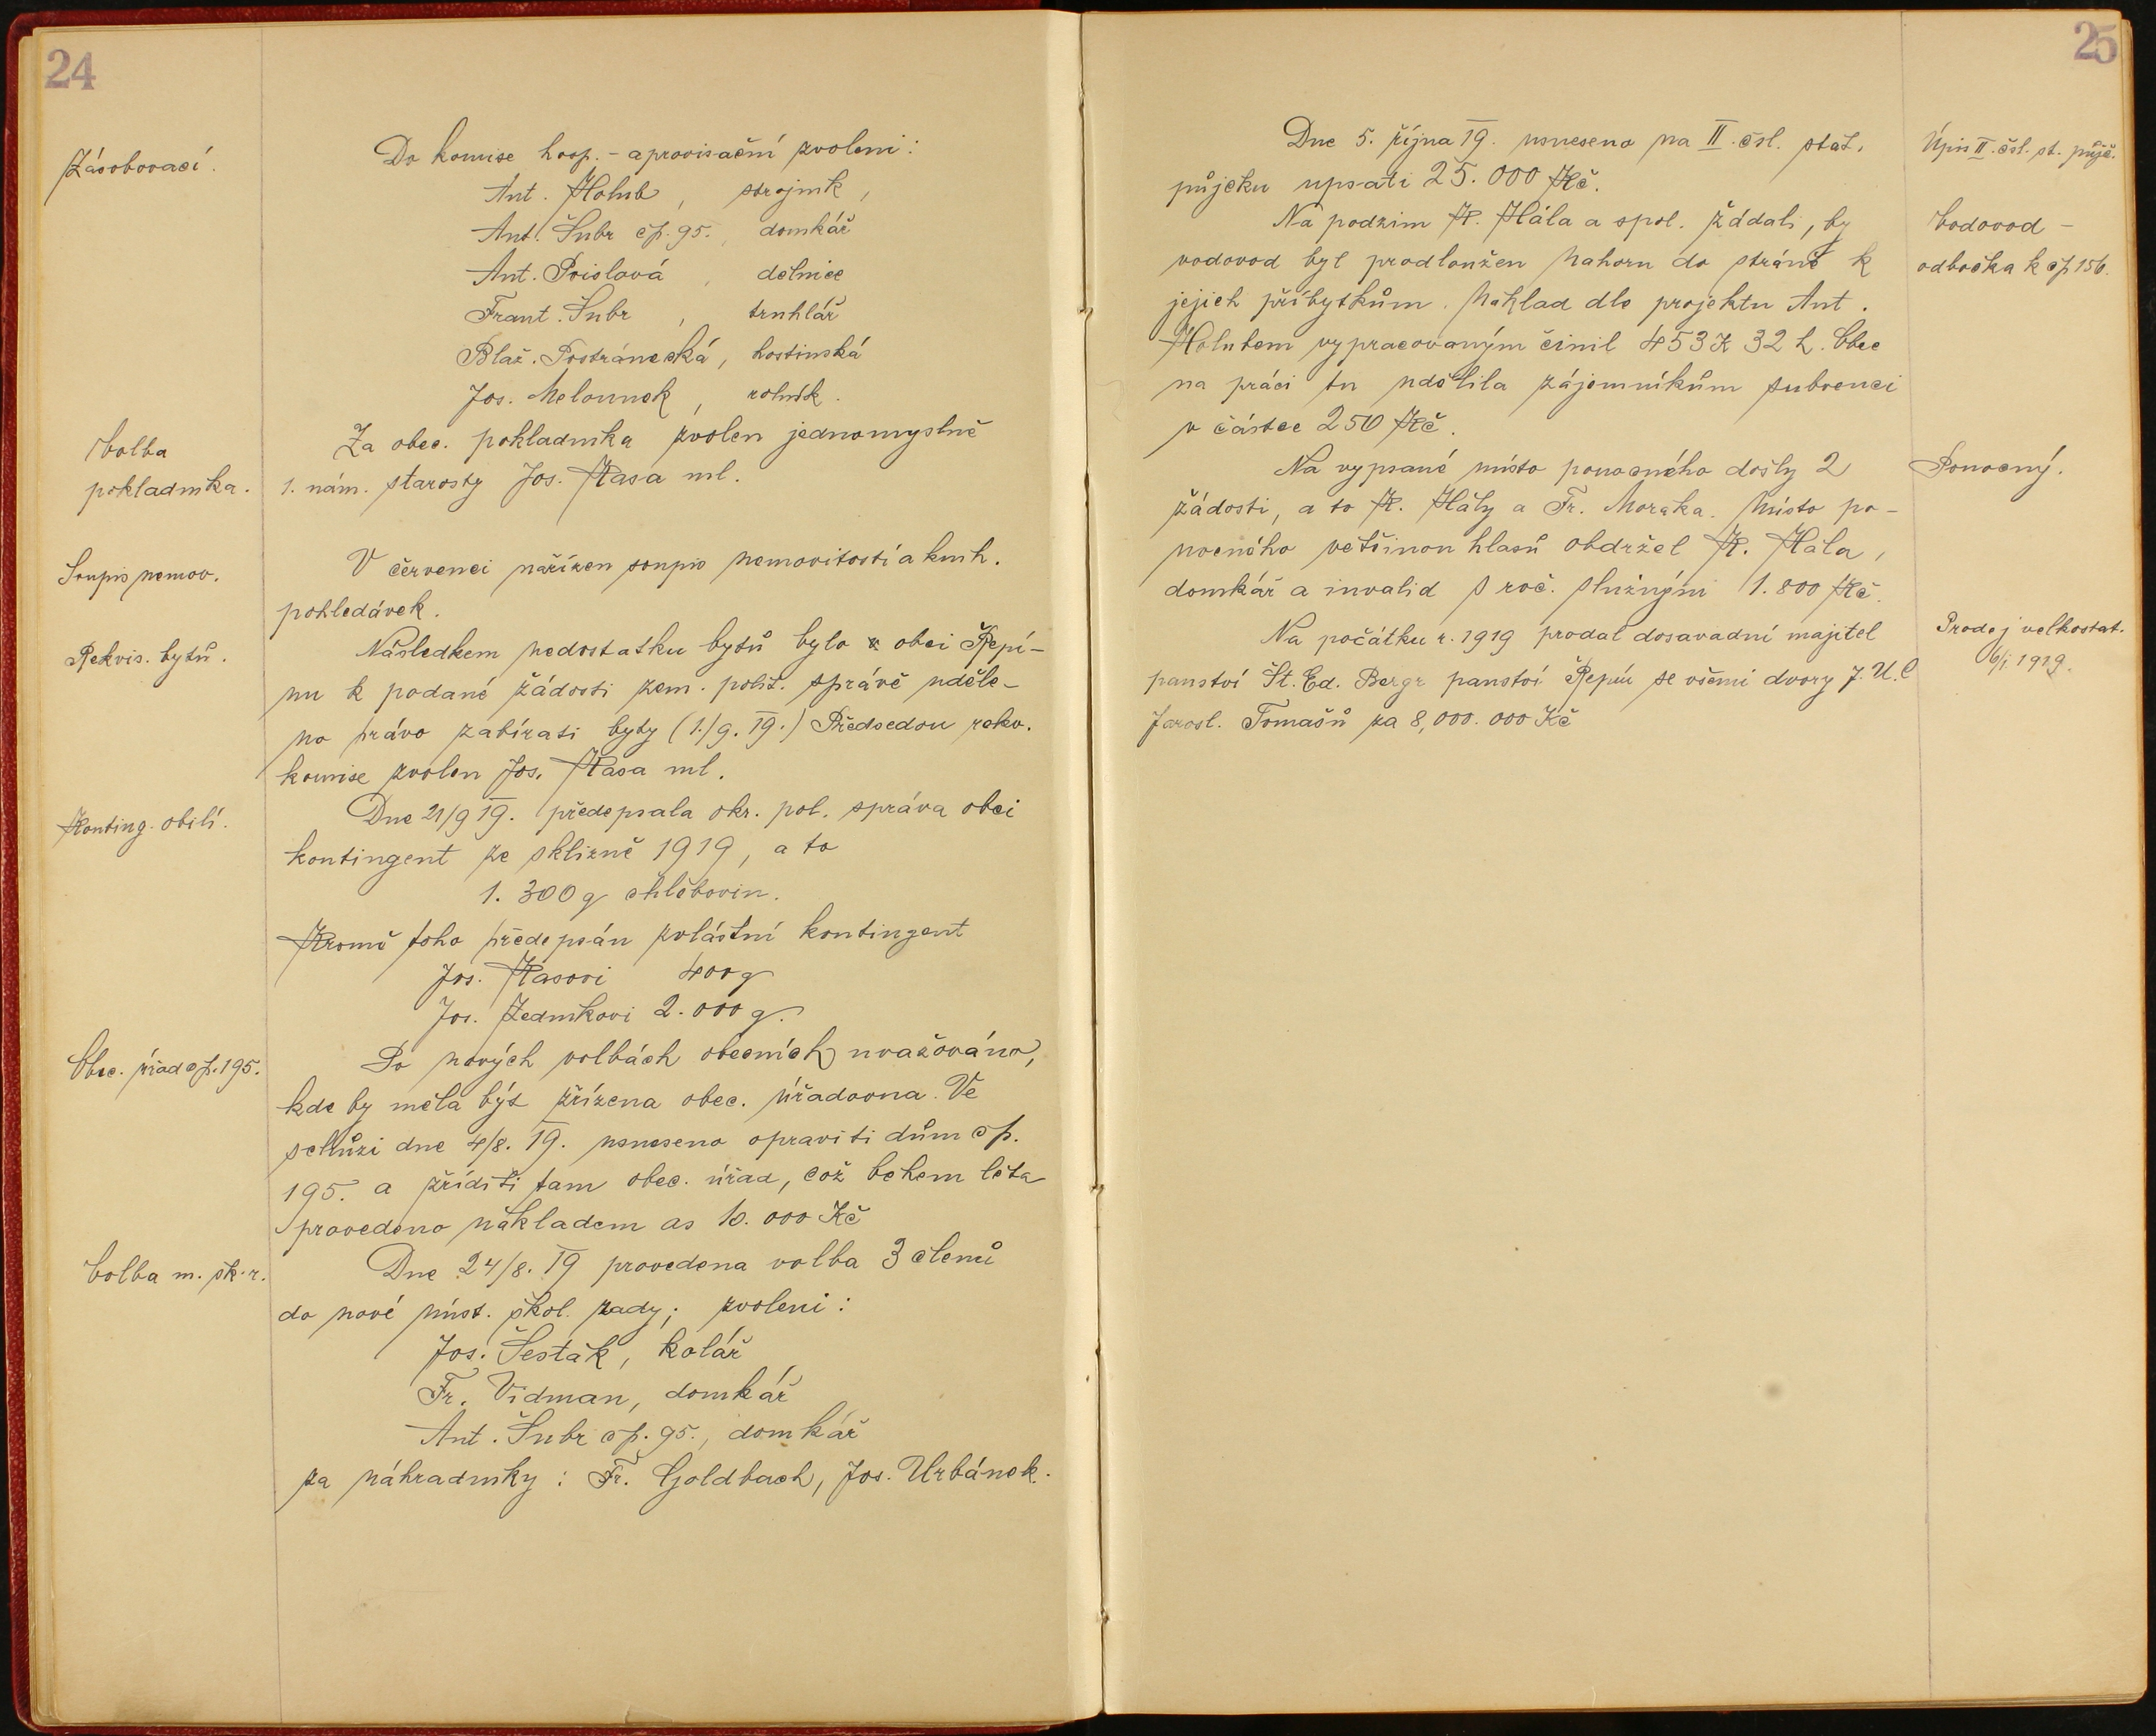 24
Zásobovací.
Do komise hosp. - aprovisační zvoleni:
Ant. Holub, strojník,
Ant. Šubr čp. 95., domkář
Ant. Poislová, dělnice
Frant. Šubr, truhlář
Blaž. Postránecká, hostinská
Jos. Melounek, rolník.
Volba
pokladníka.
Za obec. pokladníka zvolen jednomyslně
1. nám. starosty Jos. Kasa ml.
Soupis nemov.
V červenci nařízen soupis nemovitostí a knih.
pohledávek.
Rekvis. bytů.
Následkem nedostatku bytů bylo v obci Řepí-
nu k podané žádosti zem. polit. správě uděle-
no právo zabírati byty (1./9. 19.) Předsedou rekv.
komise zvolen Jos. Kasa ml.
Konting. obilí.
Dne 21/9 19. předepsala okr. pol. správa obci
kontingent ze sklizně 1919, a to
1.300 q chlebovin.
Kromě toho předepsán zvláštní kontingent
Jos. Kasovi 400 q
Jos. Zedníkovi 2.000 q.
Obec. úřad čp. 195.
Po nových volbách obecních uvažováno,
kde by měla být zřízena obec. úřadovna. Ve
schůzi dne 4/8. 19. usneseno opraviti dům čp.
195. a zříditi tam obec. úřad, což během léta
provedeno nákladem as 10.000 Kč
Volba m. šk. r.
Dne 24/8. 19 provedena volba 3 členů
do nové míst. škol. rady; zvoleni:
Jos. Šesták, kolář
Fr. Vidman, domkář
Ant. Šubr čp. 95., domkář
za náhradníky: Fr. Goldbach, Jos. Urbánek.
25
Dne 5. října 19. usneseno na II. čsl. stát.
půjčku upsati 25.000 Kč.
Úpis II. čsl. st. půjč.
Na podzim K. Hála a spol. žádali, by
vodovod byl prodloužen nahoru do stráně k
jejich příbytkům. Náklad dle projektu Ant.
Holubem vypracovaným činil 453 K 32 h. Obec
na práci tu udělila zájemníkům subvenci
v částce 250 Kč.
Vodovod -
odbočka k čp 156.
Na vypsané místo ponocného došly 2
žádosti, a to K. Hály a Fr. Moraka. Místo po-
nocného většinou hlasů obdržel K. Hála,
domkář a invalid s roč. služnými 1.800 Kč.
Ponocný.
Na počátku r. 1919 prodal dosavadní majitel
panství Št. Ed. Bergr panství Řepín se všemi dvory J. U. C
Jarosl. Tomašů za 8,000.000 Kč
Prodej velkostat.
6/i 1919.